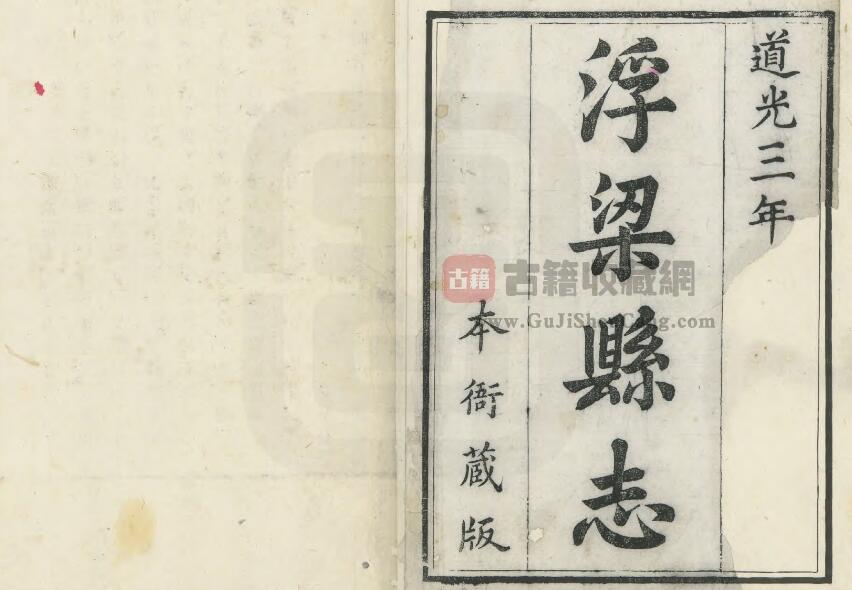 道光三年
浮梁縣志
本衙蔵版
古籍 古籍收藏網
www.GuJiShouCang.com